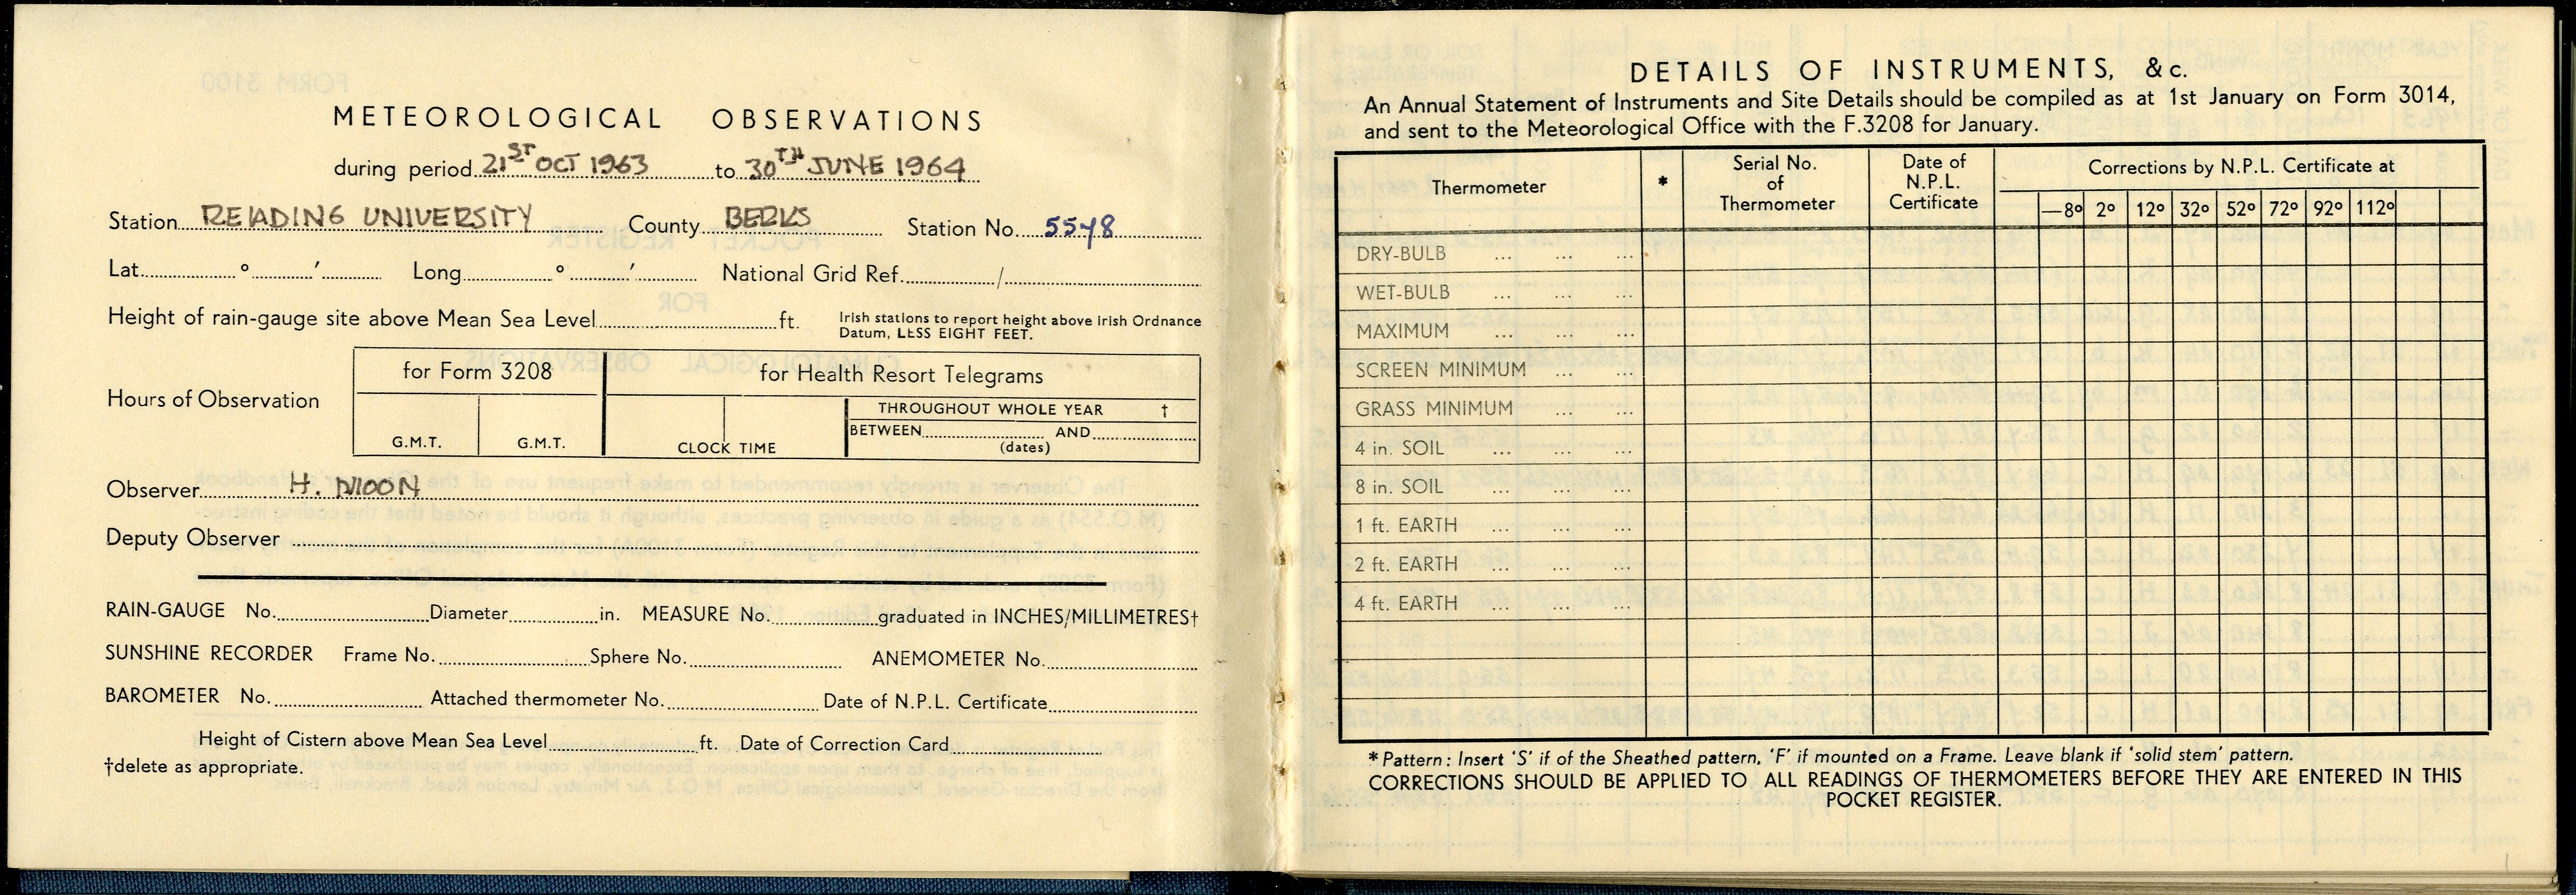 METEOROLOGICAL OBSERVATIONS
during period 21ST OCT 1963 to 30TH JUNE 1964
Station READING UNIVERSITY County BERKS Station No. 5578
Lat. ° ′ Long. ° ′ National Grid Ref. /
Height of rain-gauge site above Mean Sea Level ft. Irish stations to report height above Irish Ordnance
Datum, LESS EIGHT FEET.
for Form 3208 for Health Resort Telegrams
Hours of Observation THROUGHOUT WHOLE YEAR †
BETWEEN AND
G.M.T. G.M.T. CLOCK TIME (dates)
Observer H.
Deputy Observer
RAIN-GAUGE No. Diameter in. MEASURE No. graduated in INCHES/MILLIMETRES†
SUNSHINE RECORDER Frame No. Sphere No. ANEMOMETER No.
BAROMETER No. Attached thermometer No. Date of N.P.L. Certificate
Height of Cistern above Mean Sea Level ft. Date of Correction Card
†delete as appropriate.
DETAILS OF INSTRUMENTS, &c.
An Annual Statement of Instruments and Site Details should be compiled as at 1st January on Form 3014,
and sent to the Meteorological Office with the F.3208 for January.
Thermometer * Serial No. of Thermometer Date of N.P.L. Certificate Corrections by N.P.L. Certificate at
—8° 2° 12° 32° 52° 72° 92° 112°
DRY-BULB ... ... ...
WET-BULB ... ... ...
MAXIMUM ... ... ...
SCREEN MINIMUM ... ...
GRASS MINIMUM ... ...
4 in. SOIL ... ... ...
8 in. SOIL ... ... ...
1 ft. EARTH ... ... ...
2 ft. EARTH ... ... ...
4 ft. EARTH ... ... ...
*Pattern: Insert 'S' if of the Sheathed pattern, 'F' if mounted on a Frame. Leave blank if 'solid stem' pattern.
CORRECTIONS SHOULD BE APPLIED TO ALL READINGS OF THERMOMETERS BEFORE THEY ARE ENTERED IN THIS
POCKET REGISTER.